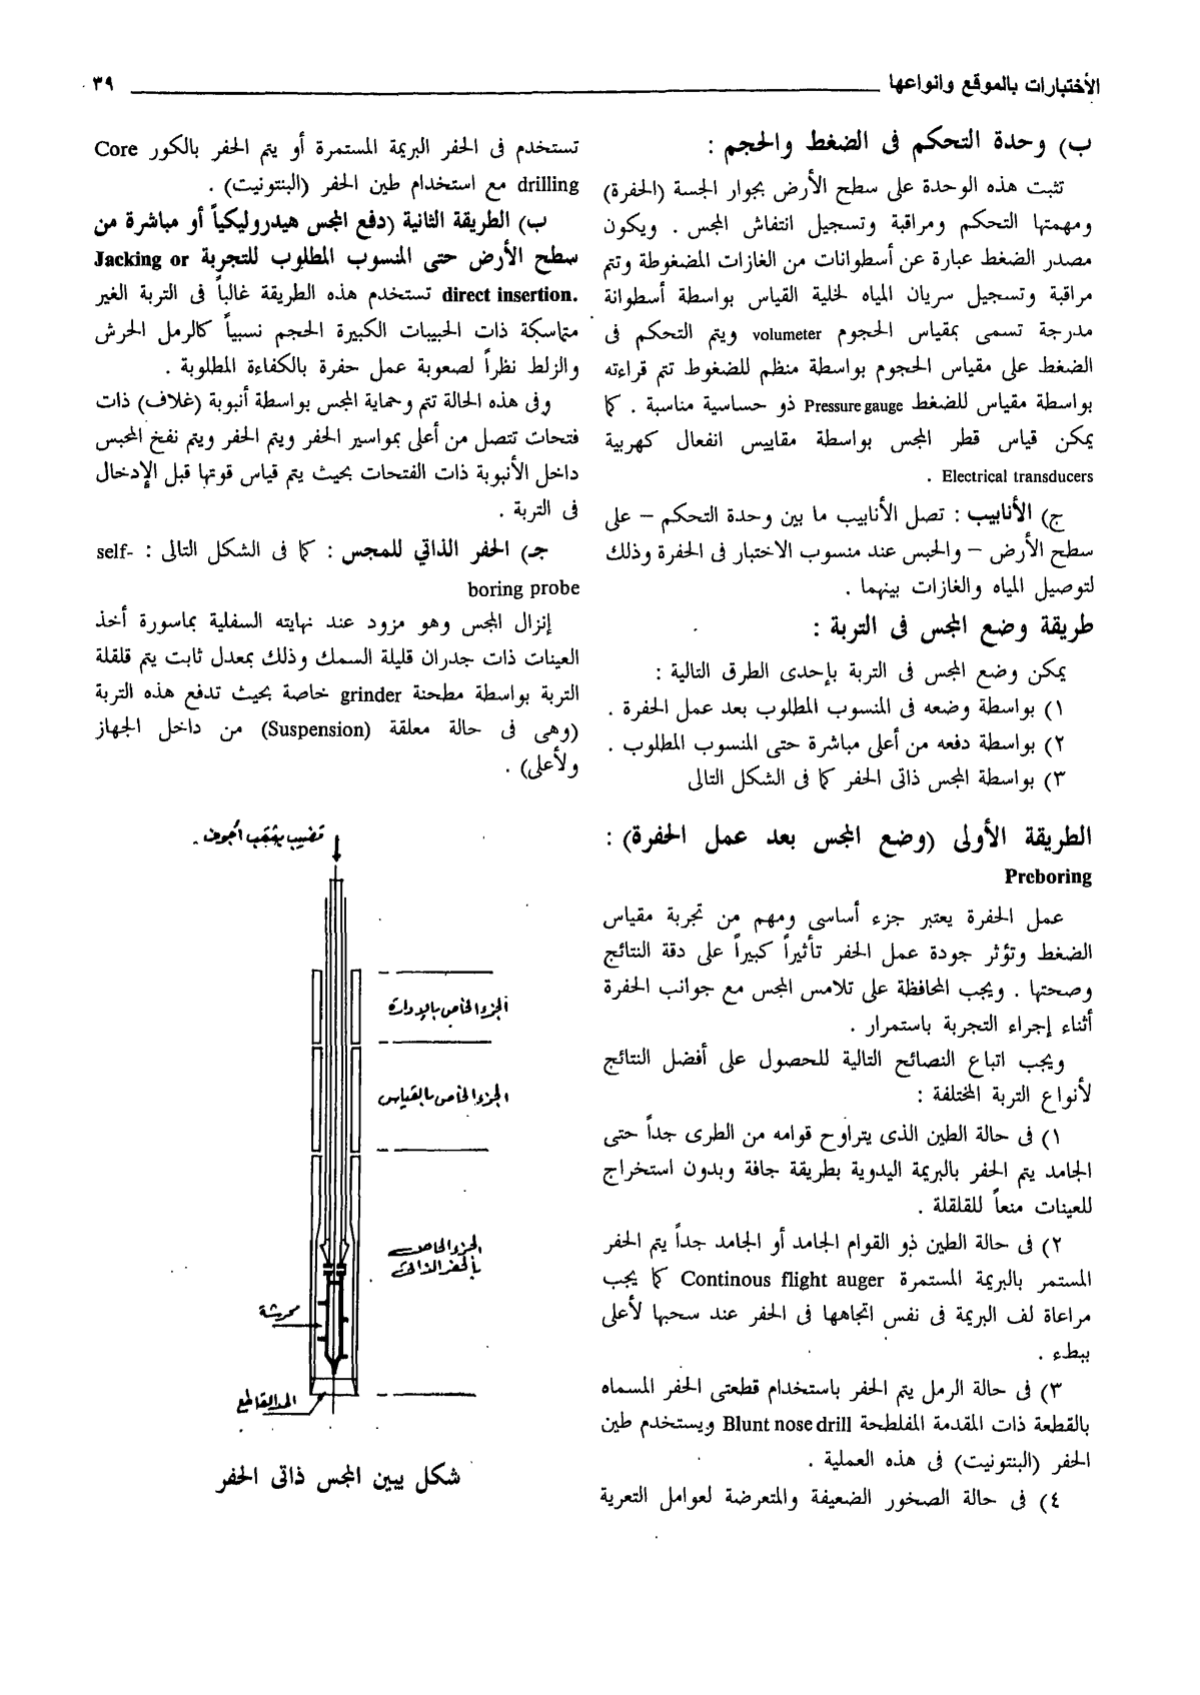 الأختبارات بالموقع وانواعها ٣٩
ب) وحدة التحكم فى الضغط والحجم :
تثبت هذه الوحدة على سطح الأرض بجوار الجسة (الحفرة)
ومهمتها التحكم ومراقبة وتسجيل انتفاش المجس . ويكون
مصدر الضغط عبارة عن أسطوانات من الغازات المضغوطة وتتم
مراقبة وتسجيل سريان المياه لخلية القياس بواسطة أسطوانة
مدرجة تسمى بمقياس الحجوم volumeter ويتم التحكم فى
الضغط على مقياس الحجوم بواسطة منظم للضغوط تتم قراءته
بواسطة مقياس للضغط Pressure gauge ذو حساسية مناسبة . كا
يمكن قياس قطر المجس بواسطة مقاييس انفعال كهربية
Electrical transducers .
ج) الأنابيب : تصل الأنابيب ما بين وحدة التحكم – على
سطح الأرض – والحبس عند منسوب الاختبار فى الحفرة وذلك
لتوصيل المياه والغازات بينهما .
طريقة وضع المجس فى التربة :
يمكن وضع المجس فى التربة بإحدى الطرق التالية :
١) بواسطة وضعه فى المنسوب المطلوب بعد عمل الحفرة .
٢) بواسطة دفعه من أعلى مباشرة حتى المنسوب المطلوب .
٣) بواسطة المجس ذاتى الحفر كا فى الشكل التالى
الطريقة الأولى (وضع المجس بعد عمل الحفرة) :
Preboring
عمل الحفرة يعتبر جزء أساسى ومهم من تجربة مقياس
الضغط وتؤثر جودة عمل الحفر تأثيراً كبيراً على دقة النتائج
وصحتها . ويجب المحافظة على تلامس المجس مع جوانب الحفرة
أثناء إجراء التجربة باستمرار .
ويجب اتباع النصائح التالية للحصول على أفضل النتائج
لأنواع التربة المختلفة :
١) فى حالة الطين الذى يتراوح قوامه من الطرى جداً حتى
الجامد يتم الحفر بالبريمة اليدوية بطريقة جافة وبدون استخراج
للعينات منعاً للقلقلة .
٢) فى حالة الطين ذو القوام الجامد أو الجامد جداً يتم الحفر
المستمر بالبريمة المستمرة Continous flight auger كا يجب
مراعاة لف البريمة فى نفس اتجاهها فى الحفر عند سحبها لأعلى
ببطء .
٣) فى حالة الرمل يتم الحفر باستخدام قطعتى الحفر المسماه
بالقطعة ذات المقدمة المفلطحة Blunt nose drill ويستخدم طين
الحفر (البنتونيت) فى هذه العملية .
٤) فى حالة الصخور الضعيفة والمتعرضة لعوامل التعرية
تستخدم فى الحفر البريمة المستمرة أو يتم الحفر بالكور Core
drilling مع استخدام طين الحفر (البنتونيت) .
ب) الطريقة الثانية (دفع المجس هيدروليكياً أو مباشرة من
سطح الأرض حتى المنسوب المطلوب للتجربة Jacking or
direct insertion. تستخدم هذه الطريقة غالباً فى التربة الغير
متماسكة ذات الحبيبات الكبيرة الحجم نسبياً كالرمل الحرش
والزلط نظراً لصعوبة عمل حفرة بالكفاءة المطلوبة .
وفى هذه الحالة تتم وحماية المجس بواسطة أنبوبة (غلاف) ذات
فتحات تتصل من أعلى بمواسير الحفر ويتم الحفر ويتم نفخ المحبس
داخل الأنبوبة ذات الفتحات بحيث يتم قياس قوتها قبل الإدخال
فى التربة .
جـ) الحفر الذاتي للمجس : كا فى الشكل التالى : self-
boring probe
إنزال المجس وهو مزود عند نهايته السفلية بماسورة أخذ
العينات ذات جدران قليلة السمك وذلك بمعدل ثابت يتم قلقلة
التربة بواسطة مطحنة grinder خاصة بحيث تدفع هذه التربة
(وهى فى حالة معلقة (Suspension) من داخل الجهاز
ولأعلى) .
قضيب بثقب أجوف .
الجزء الخاص بالإدارة
الجزء الخاص بالقياس
الجزء الخاص
بالحفر الذاتى
محرشة
الحد القاطع
شكل يبين المجس ذاتى الحفر